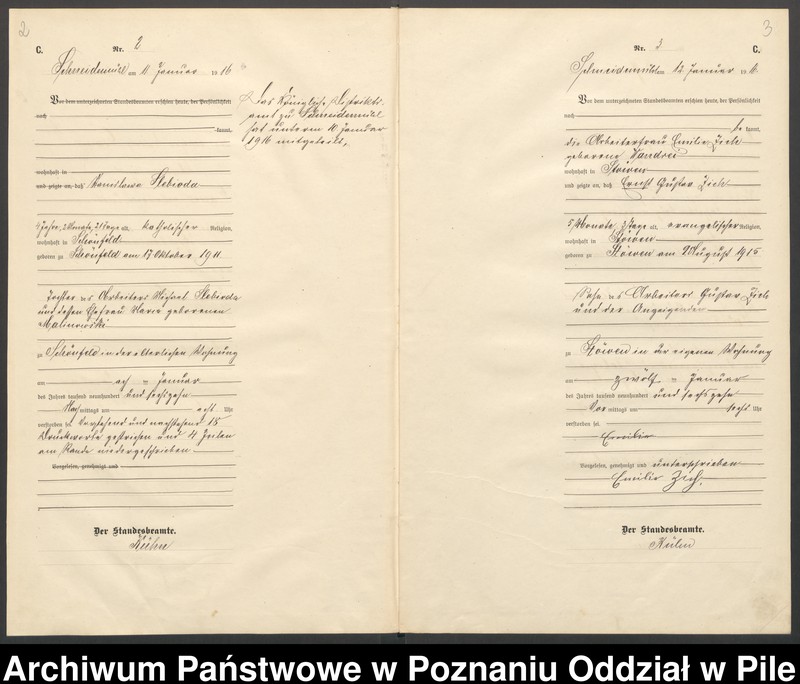 2
C.
Nr. 2
Schneidemühl am 11 Januar 1916
Vor dem unterzeichneten Standesbeamten erschien heute, der Persönlichkeit
nach
kannt,
wohnhaft in
und zeigte an, daß Stanislawa Skeboda
4 Jahre, 2 Monate, 21 Tage alt, katholischer Religion,
wohnhaft in Schönfeld
geboren zu Schönfeld am 17 Oktober 1911
Tochter des Arbeiters Michael
und dessen Ehefrau Maria geborenen
Malinowski
zu Schönfeld in der elterlichen Wohnung
am acht Januar
des Jahres tausend neunhundert und sechszehn
Nachmittags um acht Uhr
verstorben sei. Vorstehend und nachstehend 15
Druckworte gestrichen und 4 Zeilen
am Rande niedergeschrieben
Vorgelesen, genehmigt und
Der Standesbeamte.
Kühn
Das Königliche Distrikts
amt zu Schneidemühl
hat unterm 10 Januar
1916 mitgeteilt,
3
Nr. 3
C.
Schneidemühl am 12. Januar 19
Vor dem unterzeichneten Standesbeamten erschien heute, der Persönlichkeit
nach
be kannt,
die Arbeiterfrau Emilie Zieh
geborene
wohnhaft in Stöwen
und zeigte an, daß Ernst Gustav Zieh
5 Monate, 3 Tage alt, evangelischer Religion,
wohnhaft in Stöwen
geboren zu Stöwen am 9 August 1915
Sohn des Arbeiters Gustav Zieh
und der Anzeigenden
zu Stöwen in der eigenen Wohnung
am zwölf Januar
des Jahres tausend neunhundert und sechszehn
Vormittags um sechs Uhr
verstorben sei.
Emilie
Vorgelesen, genehmigt und unterschrieben
Emilie Zieh.
Der Standesbeamte.
Kühn
Archiwum Państwowe w Poznaniu Oddział w Pile